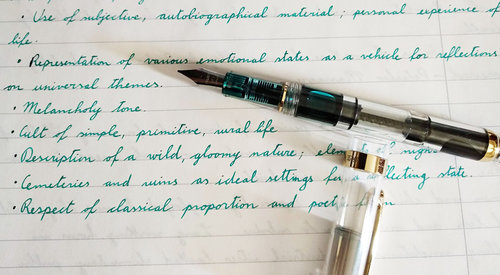 · Use of subjective, autobiographical material ; personal experience of
life.
· Representation of various emotional states as a vehicle for reflections
on universal themes.
· Melancholy tone.
· Cult of simple, primitive, rural life
· Description of a wild, gloomy nature ;
· Cemeteries and ruins as ideal settings for a reflecting state.
· Respect of classical proportion and poetic form